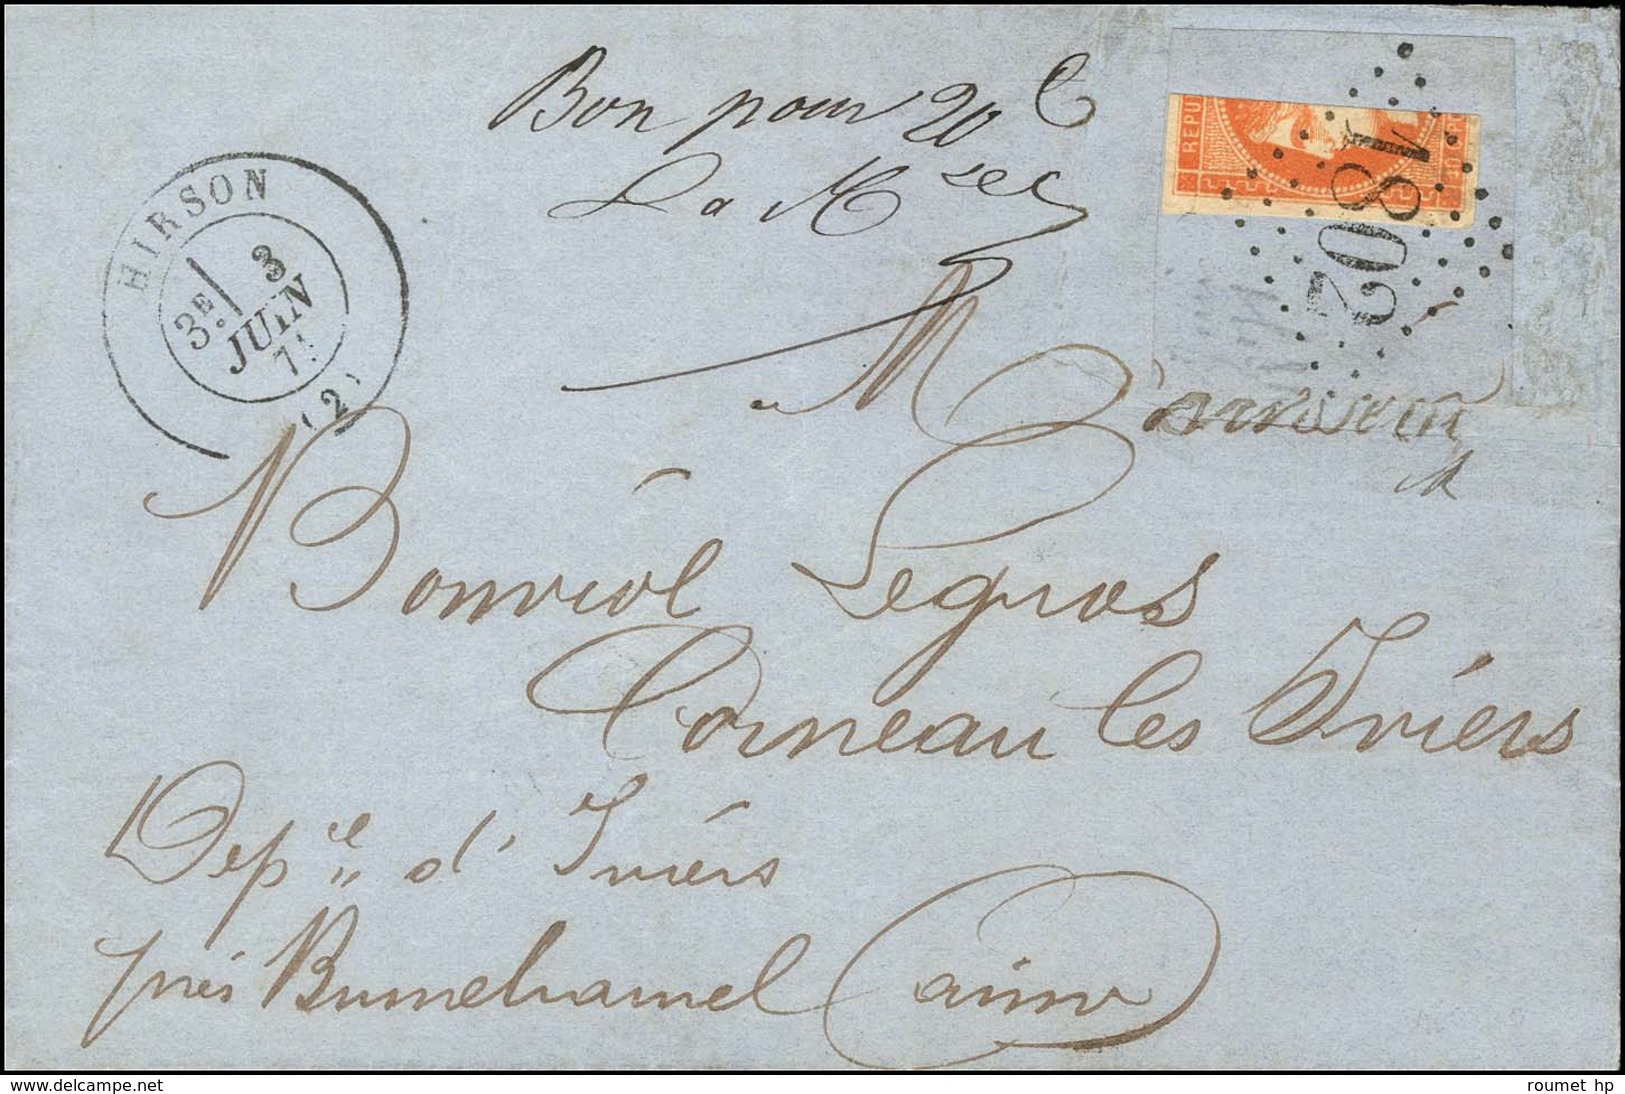 Bon pour 20 c
La R
REPU
1802
HIRSON
3E
3
JUIN
71
(2)
Monsieur
Bonviol Legros
Corneau les Iviers
Dep d'Iviers
près Brunehamel Aisne
www.delcampe.net
roumet hp